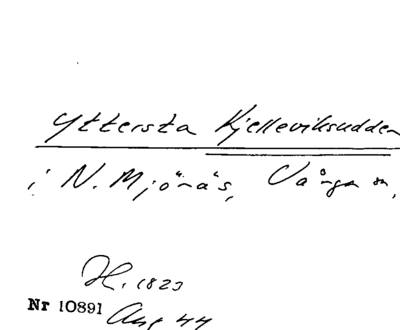 Yttersta Kjelleviksudden
i N. Mjönäs, Vånga sn,
H. 1823
Nr 10891 Aug 44